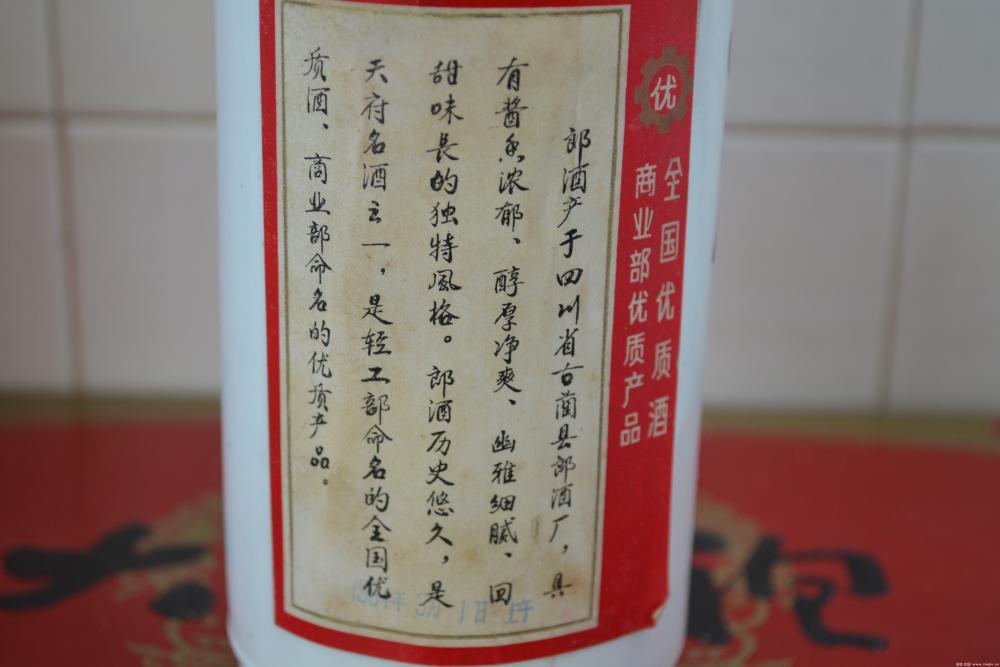 优
全国优质酒
商业部优质产品
郎酒产于四川省古蔺县郎酒厂，具
有酱香浓郁、醇厚净爽、幽雅细腻、回
甜味长的独特風格。郎酒历史悠久，是
天府名酒之一，是轻工部命名的全国优
质酒、商业部命名的优质产品。